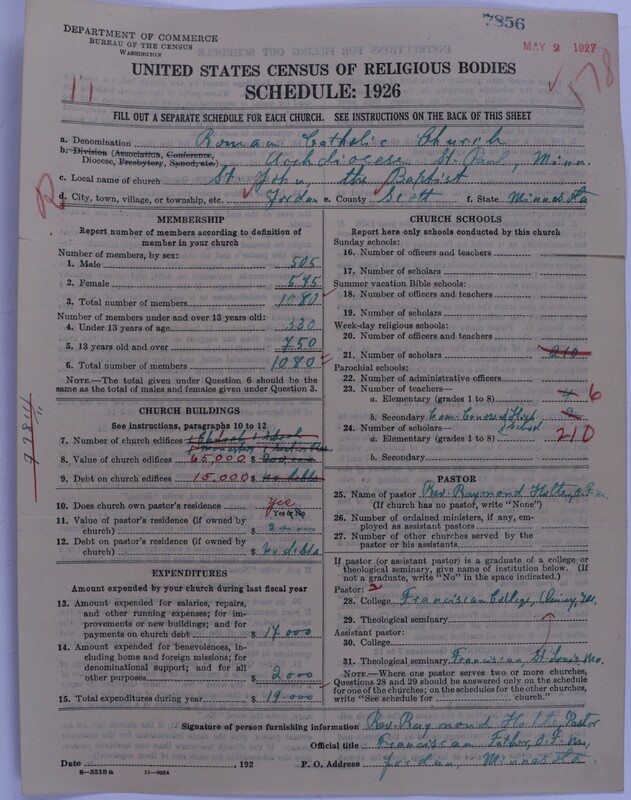 7856
DEPARTMENT OF COMMERCE
BUREAU OF THE CENSUS
WASHINGTON
MAY 2 1927
UNITED STATES CENSUS OF RELIGIOUS BODIES
SCHEDULE: 1926
FILL OUT A SEPARATE SCHEDULE FOR EACH CHURCH. SEE INSTRUCTIONS ON THE BACK OF THIS SHEET
a. Denomination Roman Catholic Church
b. Division (Association, Conference, Diocese, Presbytery, Synod, etc.) Archdiocese St. Paul, Minn.
c. Local name of church St. John, the Baptist
d. City, town, village, or township, etc. Jordan e. County Scott f. State Minnesota
MEMBERSHIP
Report number of members according to definition of
member in your church
Number of members, by sex:
1. Male 505
2. Female 575
3. Total number of members 1080
Number of members under and over 13 years old:
4. Under 13 years of age 330
5. 13 years old and over 750
6. Total number of members 1080
NOTE.—The total given under Question 6 should be
same as the total of males and females given under Question 3.
CHURCH BUILDINGS
See instructions, paragraphs 10 to 12
7. Number of church edifices
8. Value of church edifices 65,000
9. Debt on church edifices 15,000 no debts
10. Does church own pastor's residence yes
Yes or No
11. Value of pastor's residence (if owned by
church) $
12. Debt on pastor's residence (if owned by
church) $ no debts
EXPENDITURES
Amount expended by your church during last fiscal year
13. Amount expended for salaries, repairs,
and other running expenses; for im-
provements or new buildings; and for
payments on church debt $ 17.000
14. Amount expended for benevolences, in-
cluding home and foreign missions; for
denominational support; and for all
other purposes $ 2000
15. Total expenditures during year $ 19.000
CHURCH SCHOOLS
Report here only schools conducted by this church
Sunday schools:
16. Number of officers and teachers
17. Number of scholars
Summer vacation Bible schools:
18. Number of officers and teachers
19. Number of scholars
Week-day religious schools:
20. Number of officers and teachers
21. Number of scholars 210
Parochial schools:
22. Number of administrative officers
23. Number of teachers—
a. Elementary (grades 1 to 8) 6
b. Secondary High
24. Number of scholars— School
a. Elementary (grades 1 to 8) 210
b. Secondary
PASTOR
25. Name of pastor Rev. Raymond
(If church has no pastor, write "None")
26. Number of ordained ministers, if any, em-
ployed as assistant pastors
27. Number of other churches served by the
pastor or his assistants
If pastor (or assistant pastor) is a graduate of a college or
theological seminary, give name of institution below. (If
not a graduate, write "No" in the space indicated.)
Pastor: 2
28. College Franciscan College, Quincy, Ills.
29. Theological seminary
Assistant pastor:
30. College
31. Theological seminary Franciscan St. Louis, Mo.
NOTE.—Where one pastor serves two or more churches,
Questions 28 and 29 should be answered only on the schedule
for one of the churches; on the schedules for the other churches,
write "See schedule for church."
Signature of person furnishing information Rev. Raymond Pastor
Official title Franciscan Father, O.F.M.
Date , 192 P. O. Address Jordan, Minnesota
8—5518a 11—9054